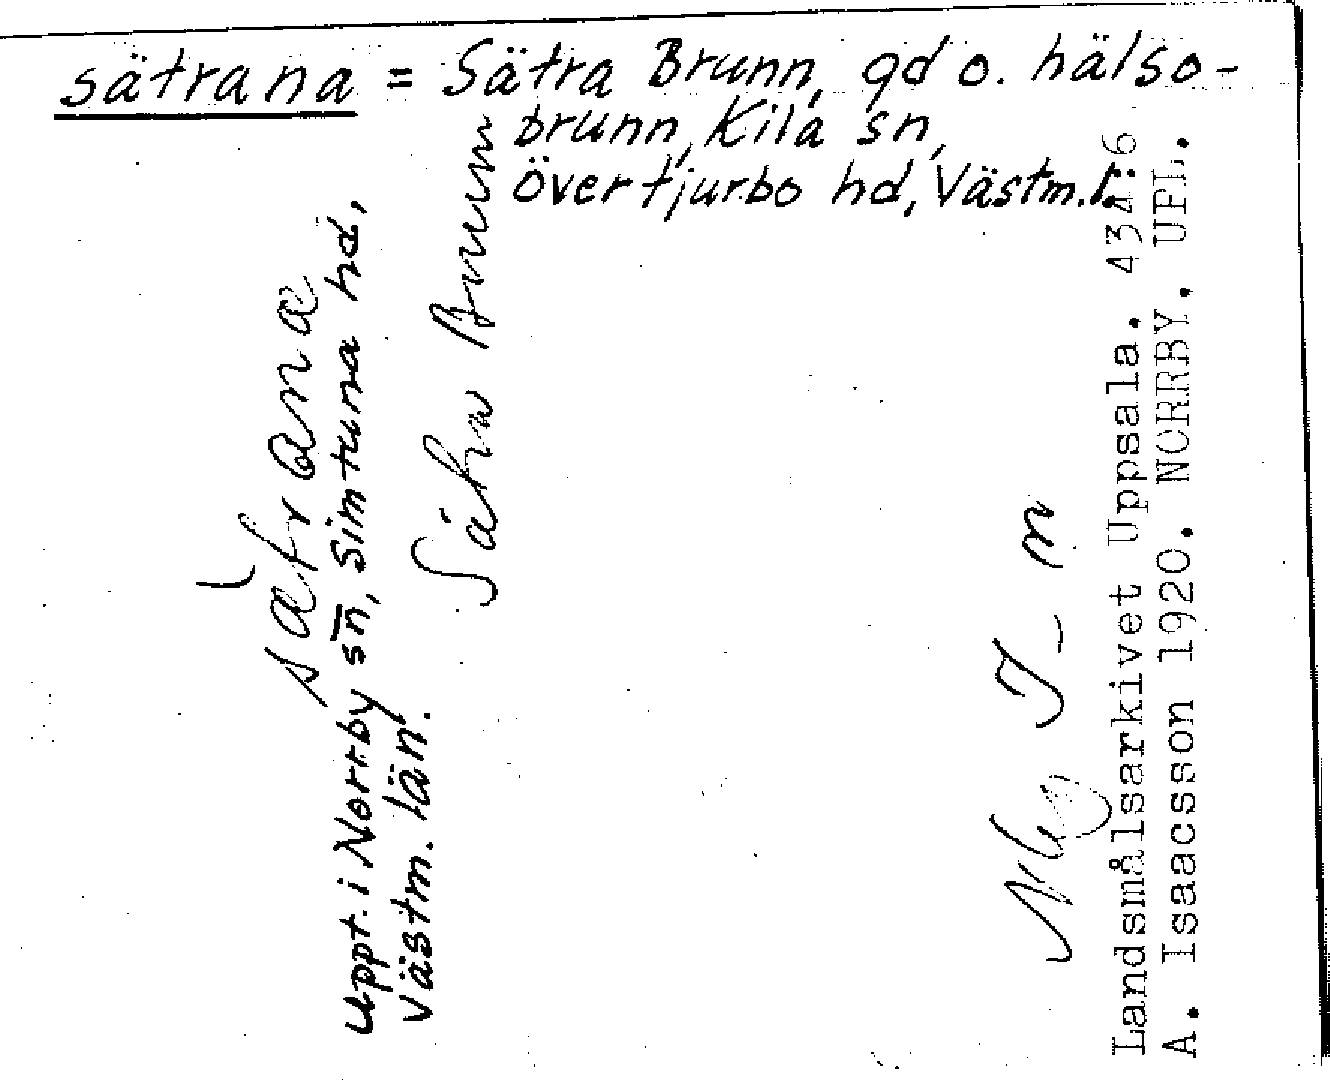 sätrana = Sätra Brunn, gd o. hälso-
brunn, Kila sn,
Övertjurbo hd, Västm.l.
sätrana
Uppt. i Norrby sn, Simtuna hd,
Västm. län.
Sätra Brunn
Landsmålsarkivet Uppsala. 434:6
A. Isaacsson 1920. NORRBY. UPL.